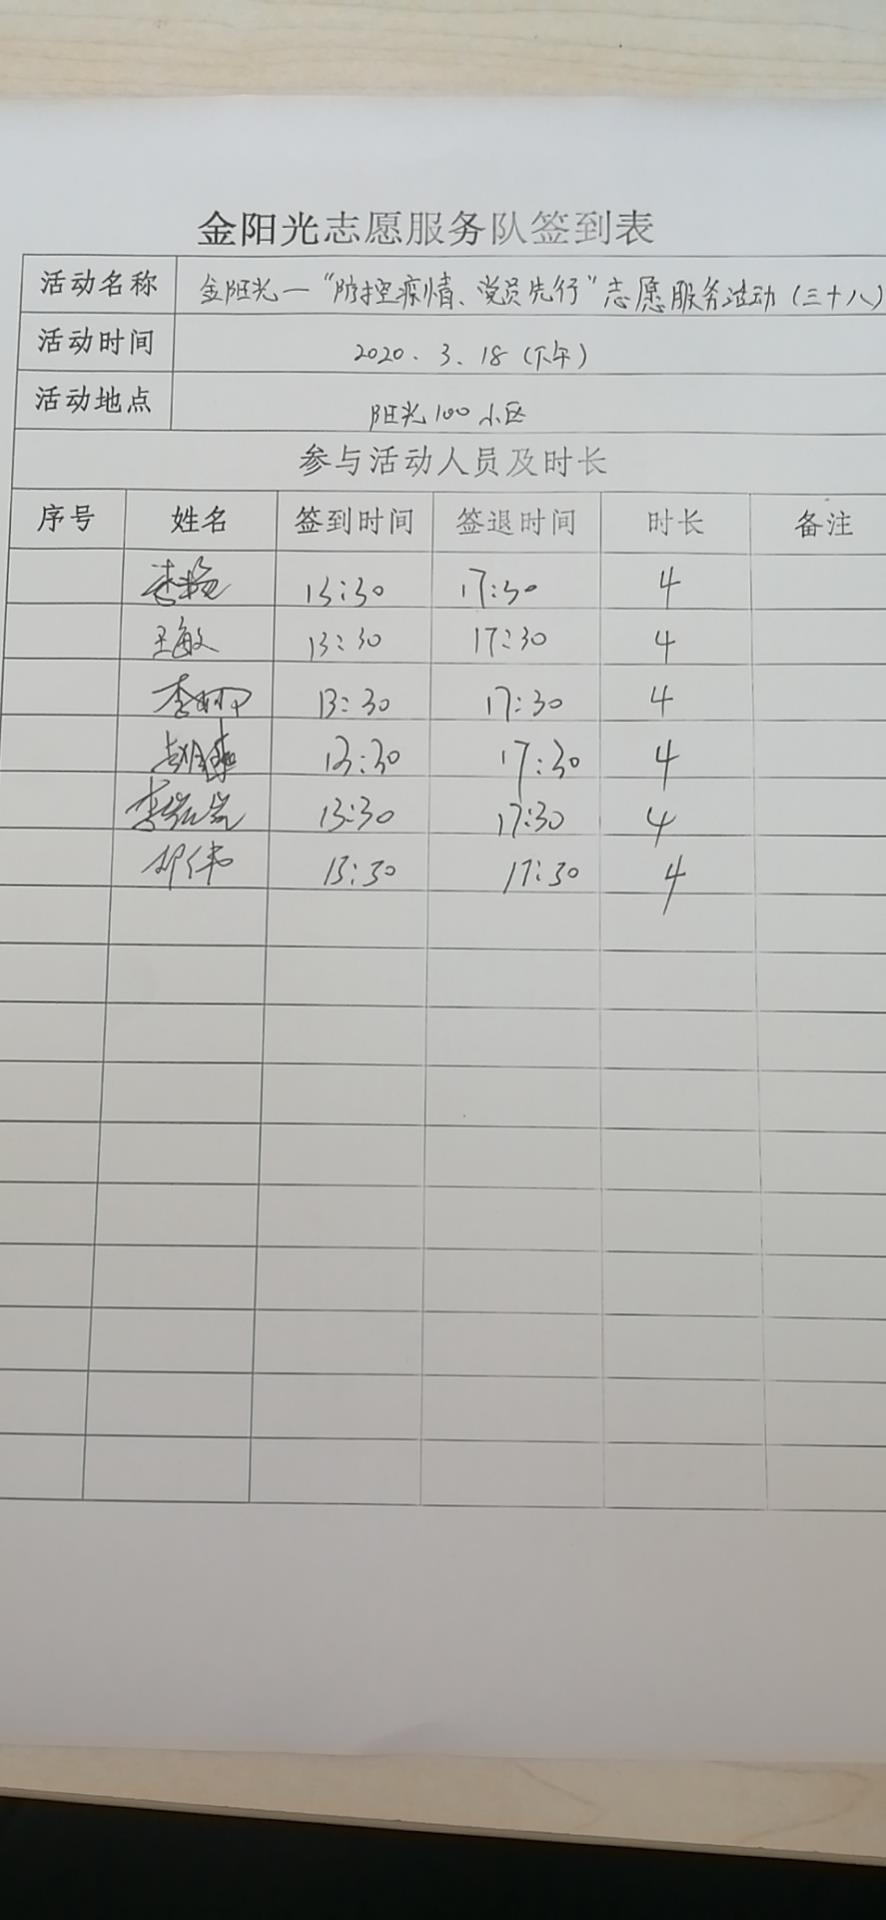 金阳光志愿服务队签到表
活动名称 金阳光—“防控疫情、党员先行”志愿服务活动(三十八)
活动时间 2020.3.18(下午)
活动地点 阳光100小区
参与活动人员及时长
序号 姓名 签到时间 签退时间 时长 备注
李杨 13:30 17:30 4
王敏 13:30 17:30 4
李 13:30 17:30 4
13:30 17:30 4
李 13:30 17:30 4
邹伟 13:30 17:30 4